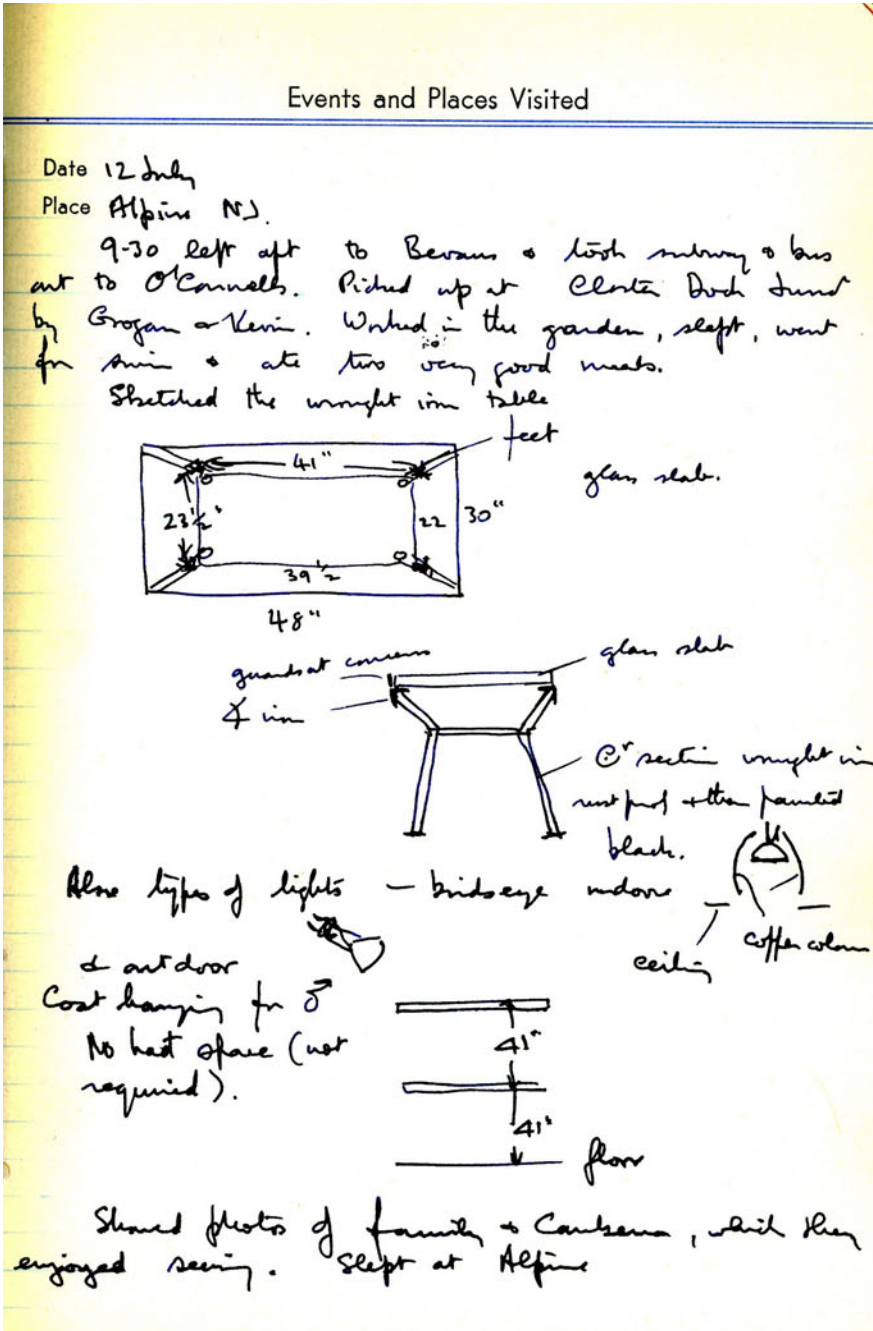 Events and Places Visited
Date 12 July
Place Alpine NJ.
9-30 left apt to Bevans & took subway & bus
out to O'Connells. Picked up at Closter Dock
by Grogan & Kevin. Worked in the garden, slept, went
for swim & ate two very good meals.
Sketched the wrought iron table
feet
41"
glass slab.
23½"
22
30"
39½
48"
guards at corners
glass slab
∡ iron
section wrought iron
rust proof & then painted
black.
Also types of lights — birdseye indoor
copper colour
ceiling
& outdoor
Coat hanging for ♂
41"
No hat space (not
required).
41"
floor
Showed photos of family & Canberra, which they
enjoyed seeing. Slept at Alpine